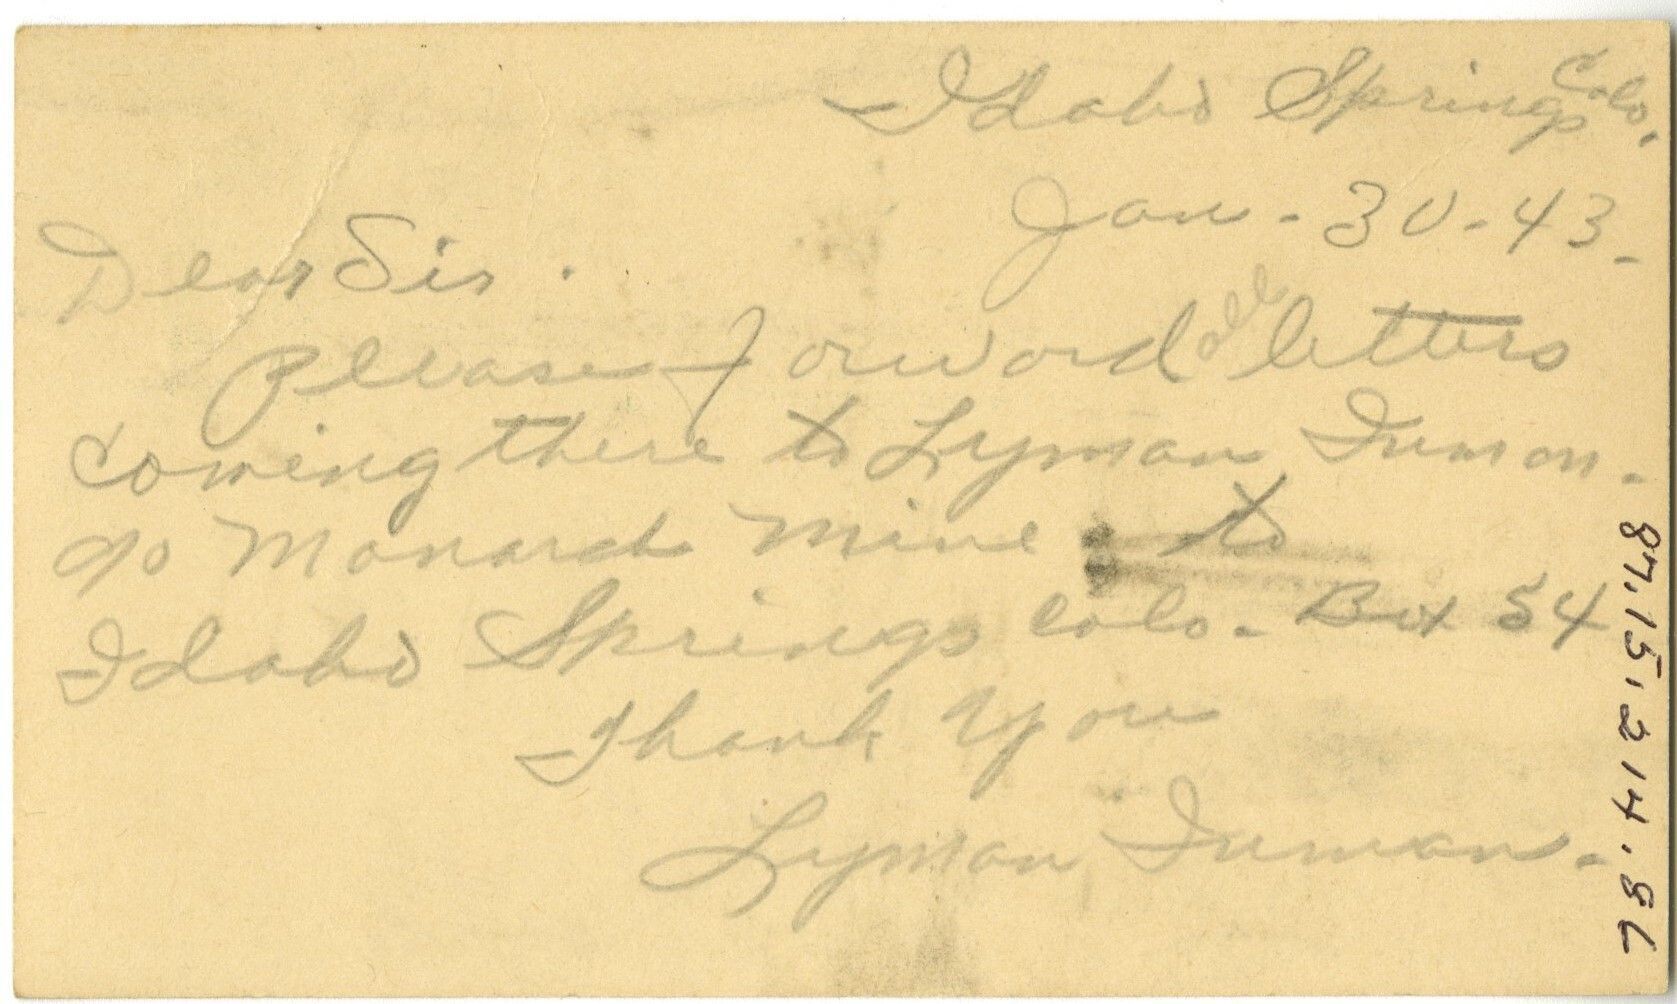 Idaho Springs Colo.
Jan - 30 - 43 -
Dear Sir.
Please forward all letters
coming there to Lyman Inman.
c/o Monarch Mine to
Idaho Springs Colo. Box 54
Thank You
Lyman Inman.
87.15.214.86